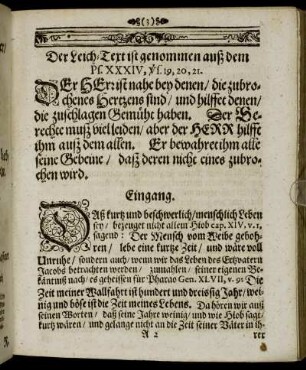 (3)
Der Leich-Text ist genommen auß dem
Ps. XXXIV, ỹs. 19, 20, 21.
DEr HErr ist nahe bey denen / die zubro-
chenes Hertzens sind / und hilffet denen /
die zuschlagen Gemühe haben. Der Ge-
rechte muß viel leiden / aber der HERR hilfft
ihm auß dem allen. Er bewahret ihm alle
seine Gebeine / daß deren nicht eines zubro-
chen wird.
Eingang.
DAß kurtz und beschwerlich / menschlich Leben
sey / bezeuget nicht allein Hiob cap. XIV. v. 1,
sagend: Der Mensch vom Weibe geboh-
ren / lebe eine kurtze Zeit / und wäre voll
Unruhe / sondern auch / wenn wir das Leben des Ertzvatern
Jacobs betrachten werden / zumahlen seiner eigenen Be-
käntnuß nach / es geheissen für Pharao Gen. XLVII, v. 9: Die
Zeit meiner Wallfahrt ist hundert und dreissig Jahr / we-
nig und böse ist die Zeit meines Lebens. Da hören wir auß
seinen Worten / daß seine Jahre weinig / und wie Hiob sagt /
kurtz wären / und gelange nicht an die Zeit seiner Väter in ih-
A 2 rer